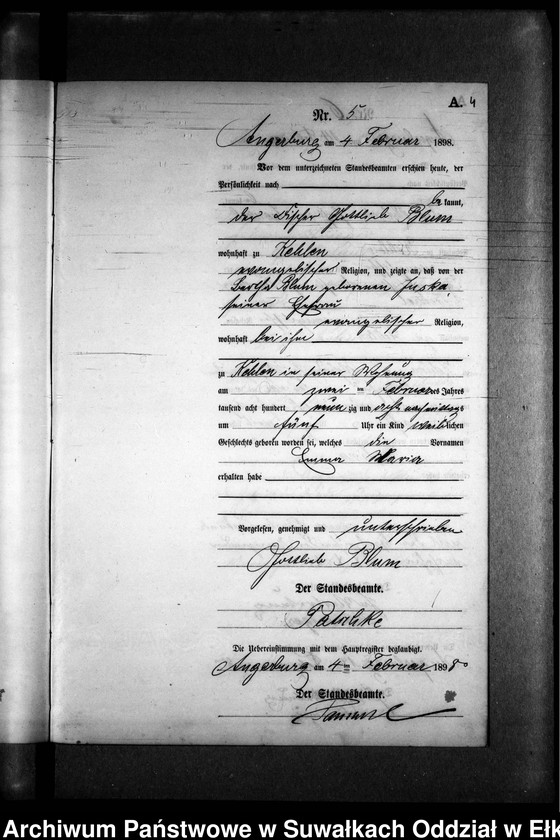 A. 4
Nr. 5
Angerburg am 4 Februar 1898.
Vor dem unterzeichneten Standesbeamten erschien heute, der
Persönlichkeit nach
bekannt,
der Tischler Gottlieb Blum
wohnhaft zu Kehlen
evangelischer Religion, und zeigte an, daß von der
Bertha Blum geborenen Juska,
seiner Ehefrau
evangelischer Religion,
wohnhaft bei ihm
zu Kehlen in seiner Wohnung
am zwei ten Februar des Jahres
tausend acht hundert neun zig und acht nachmittags
um fünf Uhr ein Kind weiblichen
Geschlechts geboren worden sei, welches die Vornamen
Emma Maria
erhalten habe
Vorgelesen, genehmigt und unterschrieben
Gottlieb Blum
Der Standesbeamte.
Die Uebereinstimmung mit dem Hauptregister beglaubigt.
Angerburg am 4ten Februar 1898
Der Standesbeamte.
Archiwum Państwowe w Suwałkach Oddział w Ełk